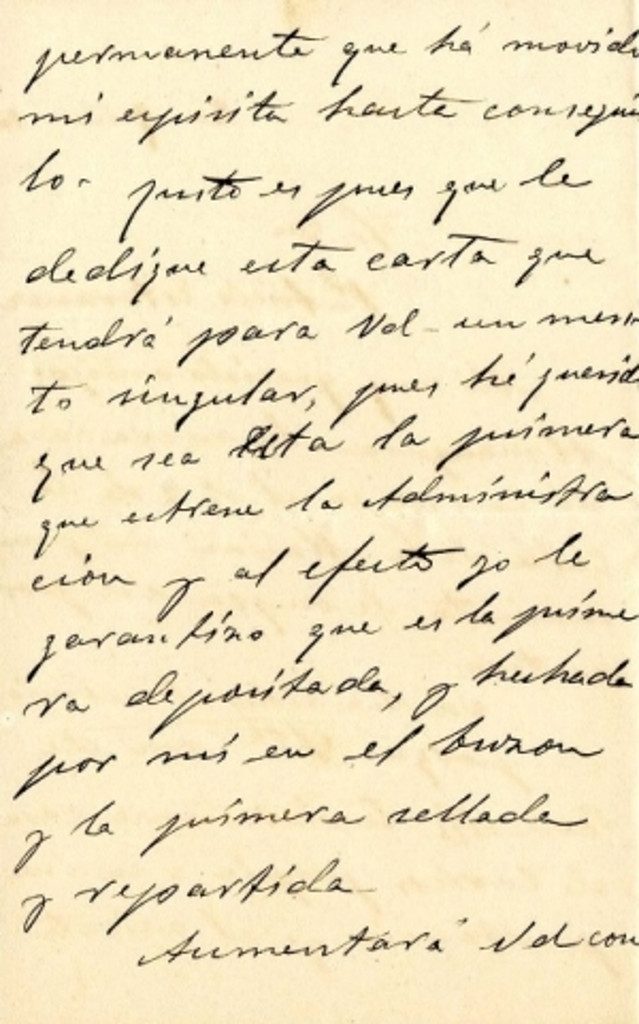 permanente que há movido
mi espirita hasta consegui
lo- justo es pues que le
dedique esta carta que
tendrá para Vd- un meri-
to singular, pues hé querid
que sea esta la primera
que estrene la Administra
cion y al efecto yo le
garantizo que es la prime
ra depositada, y hechada
por mi en el buzon
y la primera sellada
y repartida-
Aumentará Vd con